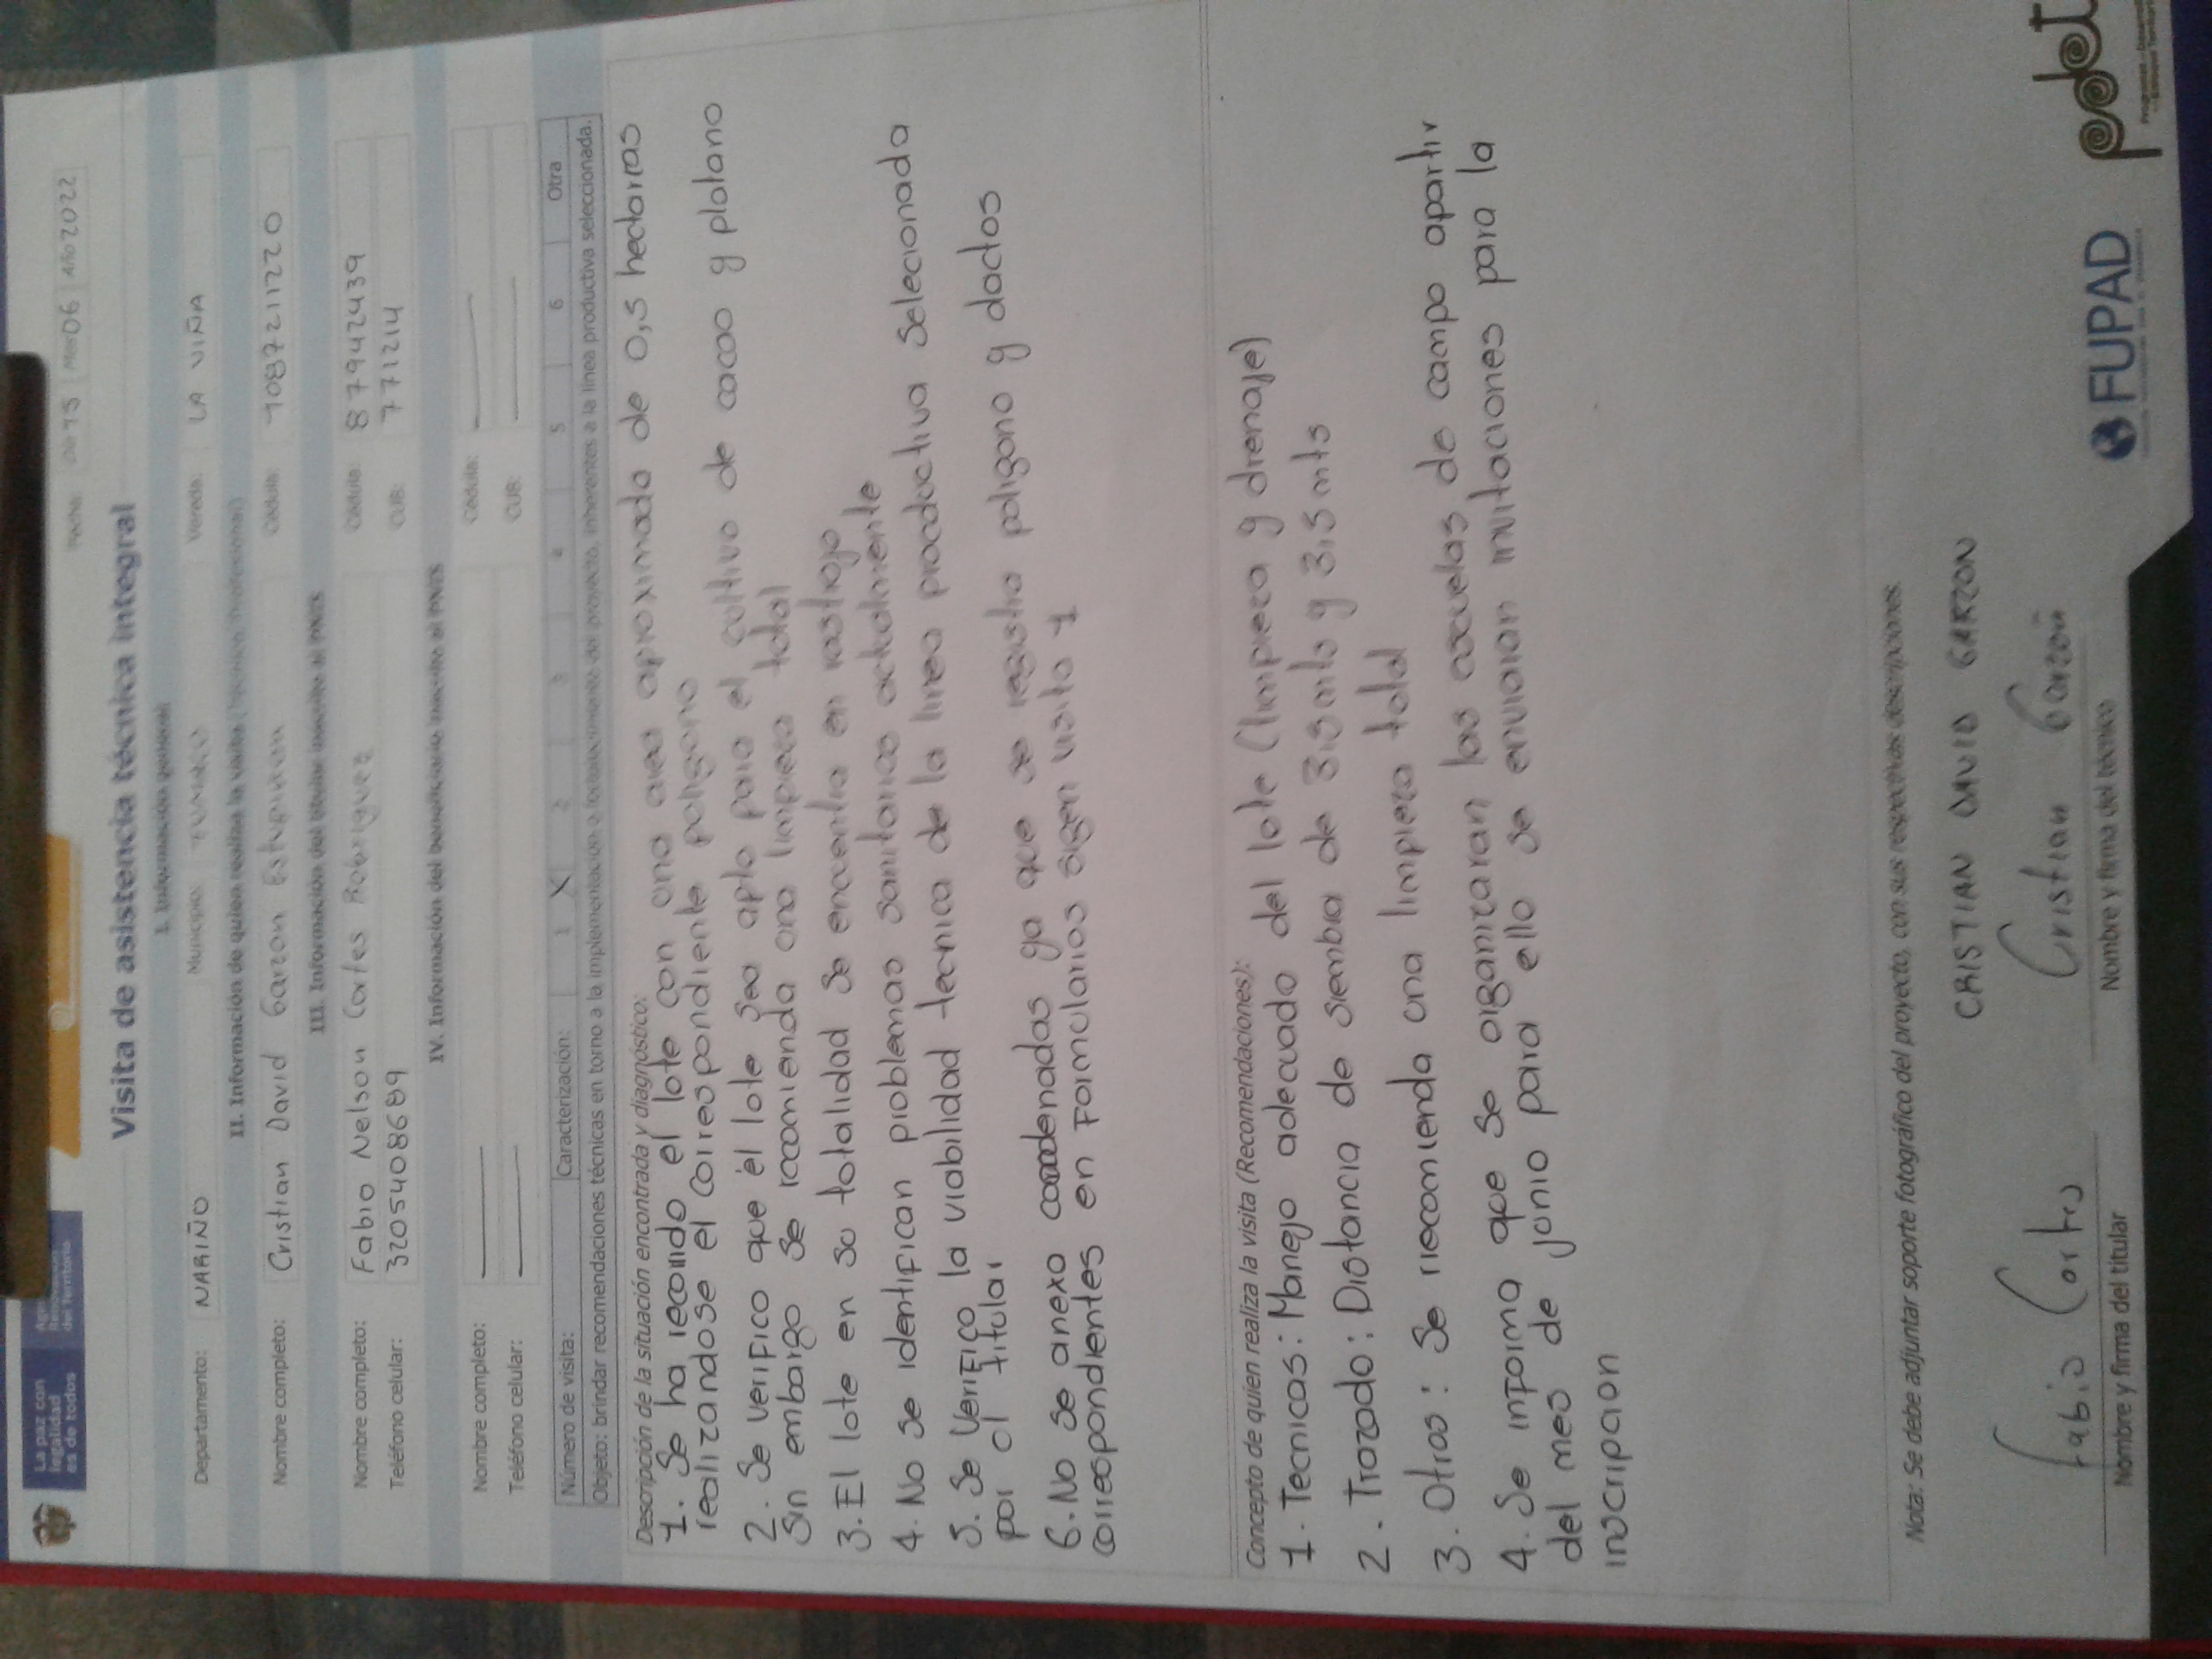 La paz con
legalidad
es de todos
del Territorio
Visita de asistencia técnica integral
Fecha: Día 15 Mes 06 Año 2022
I. Información general
Departamento: NARIÑO Municipio: TUMACO Vereda: LA VIÑA
II. Información de quien realiza la visita (Técnico/Profesional)
Nombre completo: Cristian David Garzon Estupiñan Cédula: 1087211220
III. Información del titular inscrito al PNIS
Nombre completo: Fabio Nelson Cortes Rodriguez Cédula: 87942439
Teléfono celular: 3205408689 CUB: 771214
IV. Información del beneficiario inscrito al PNIS
Nombre completo: Cédula:
Teléfono celular: CUB:
Número de visita: Caracterización: 1 X 2 3 4 5 6 Otra
Objeto: brindar recomendaciones técnicas en torno a la implementación o fortalecimiento del proyecto, inherentes a la línea productiva seleccionada.
Descripción de la situación encontrada y diagnóstico:
1. Se ha recorrido el lote con una area aproximada de 0,5 hectareas
realizandose el correspondiente poligono
2. Se verifico que el lote sea apto para el cultivo de cacao y platano
Sin embargo se recomienda una limpieza total
3. El lote en su totalidad se encuentra en rastrojo
4. No se identifican problemas sanitarios actualmente
5. Se verifico la viabilidad tecnica de la linea productiva selecionada
por el titular
6. No se anexo coordenadas ya que se registra poligono y dactos
correspondientes en Formularios sigen visita 1
Concepto de quien realiza la visita (Recomendaciones):
1. Tecnicas: Manejo adecuado del lote (limpieza y drenaje)
2. Trazado: Distancia de siembra de 3,5 mts y 3,5 mts
3. Otros: Se recomienda una limpieza total
4. Se informa que se organizaran las escuelas de campo apartir
del mes de junio para ello se enviaran invitaciones para la
inscripcion
Nota: Se debe adjuntar soporte fotográfico del proyecto, con sus respectivas descripciones.
CRISTIAN DAVID GARZON
Fabio Cortes Cristian Garzon
Nombre y firma del titular Nombre y firma del técnico
FUPAD
pdet